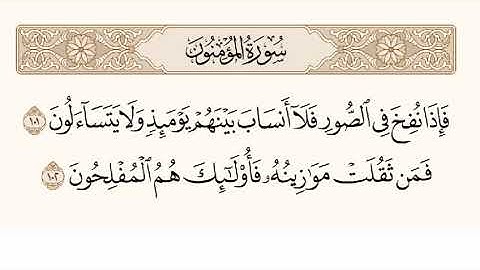 سُورَةُ المُؤۡمِنُونَ
فَإِذَا نُفِخَ فِي ٱلصُّورِ فَلَآ أَنسَابَ بَيۡنَهُمۡ يَوۡمَئِذٖ وَلَا يَتَسَآءَلُونَ ١٠١
فَمَن ثَقُلَتۡ مَوَٰزِينُهُۥ فَأُوْلَٰٓئِكَ هُمُ ٱلۡمُفۡلِحُونَ ١٠٢